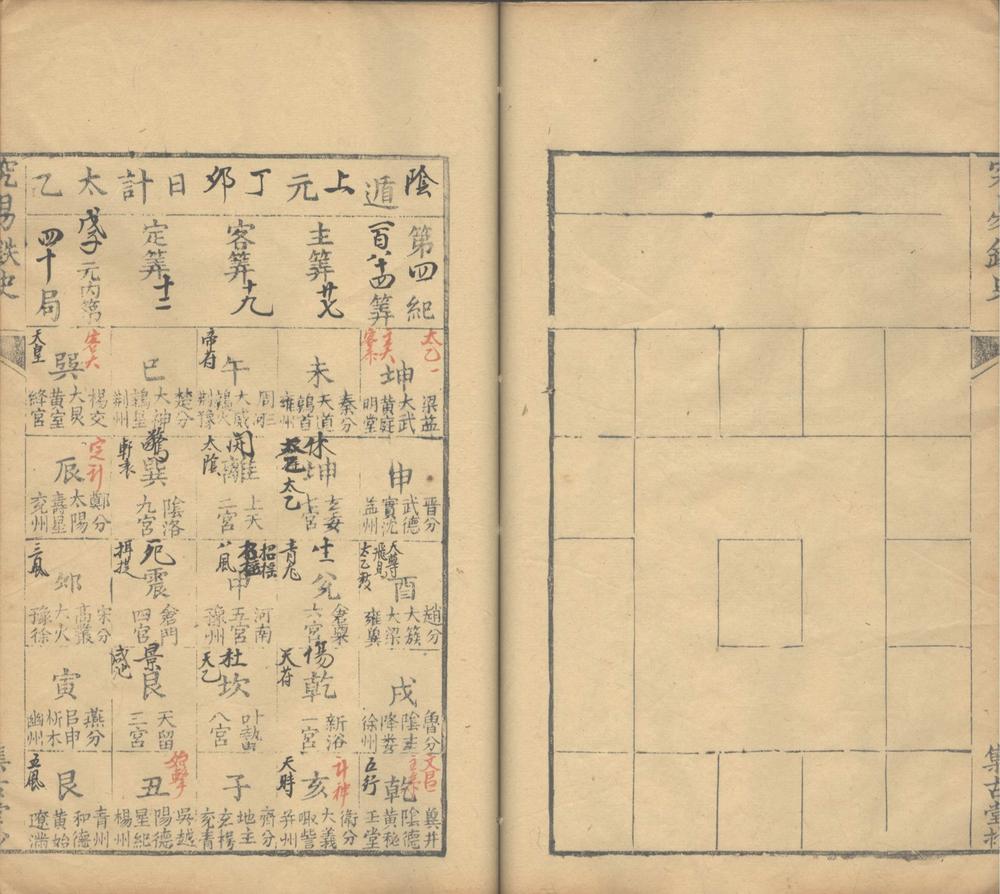 陰遁上元丁卯日計太乙
第四紀
一百八十四筭
主筭廿七
客筭十九
定筭十二
戊子元内第
四十局
太乙一
主大
坤
大武
黃庭
明堂
梁益
未
秦分
天道
鶉首
雍州
帝符
午
周三河
大威
鶉火
荆豫
巳
楚分
大神
鶉尾
荆州
客大
天皇
巽
楊交
大炅
黃室
絳宮
申
晋分
武德
實沈
益州
休
坤
七宮
太乙
開
離
太陰
上天
二宮
驚
巽
軒轅
陰洛
九宮
定計
辰
鄭分
太陽
壽星
兖州
天尊
飛鳥
太乙数
酉
趙分
大簇
大梁
雍冀
生
兊
青龙
倉菓
六宮
招摇
八風
中
河南
五宮
豫州
死
震
倉門
四宮
三風
卯
宋分
高叢
大火
豫徐
戌
魯分
陰主
降婁
徐州
傷
乾
天符
新洛
一宮
杜
坎
天乙
叶蟄
八宮
景
艮
咸池
天留
三宮
寅
燕分
吕申
析木
幽州
文昌
五行
乾
冀井
陰德
黃秘
玉堂
計神
天時
亥
衛分
大義
娵訾
并州
子
齊分
地主
玄枵
兖青
始擊
丑
吳越
陽德
星紀
楊州
五風
艮
青州
和德
黃始
遼湍
究易鉄史
集古堂